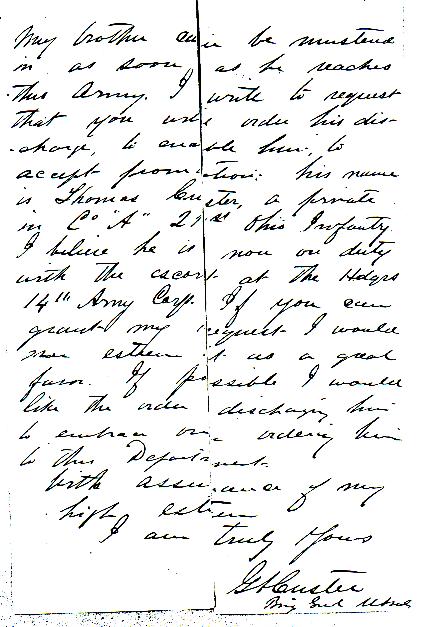 My brother can be mustered
in as soon as he reaches
this Army. I write to request
that you will order his dis-
-charge, to enable him, to
accept promotion: his name
is Thomas Custer, a private
in Co "A" 21st Ohio Infantry
I believe he is now on duty
with the escort at the Hdqrs
14th Army Corps. If you can
grant my request I would
esteem it as a great
favor. If possible I would
like the order discharging him
to embrace one ordering him
to this Department.
With assurance of my
high esteem
I am truly Yours
GACuster
Brig Genl U S Vols